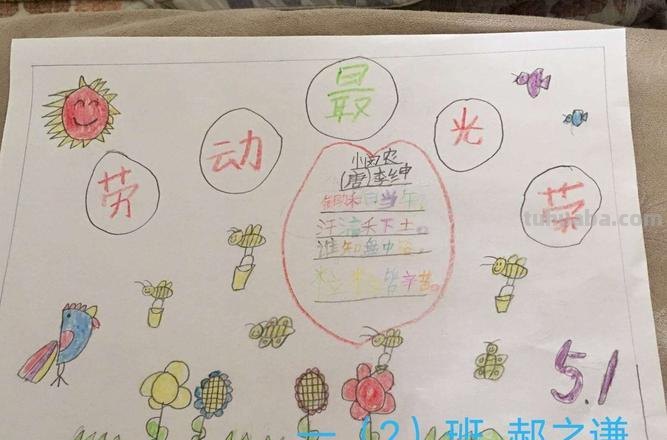 劳动最光荣
悯农
(唐)李绅
锄禾日当午,
汗滴禾下土。
谁知盘中餐。
粒粒皆辛苦。
tuhuaba.com
5.1
一(2)班 郝之谦